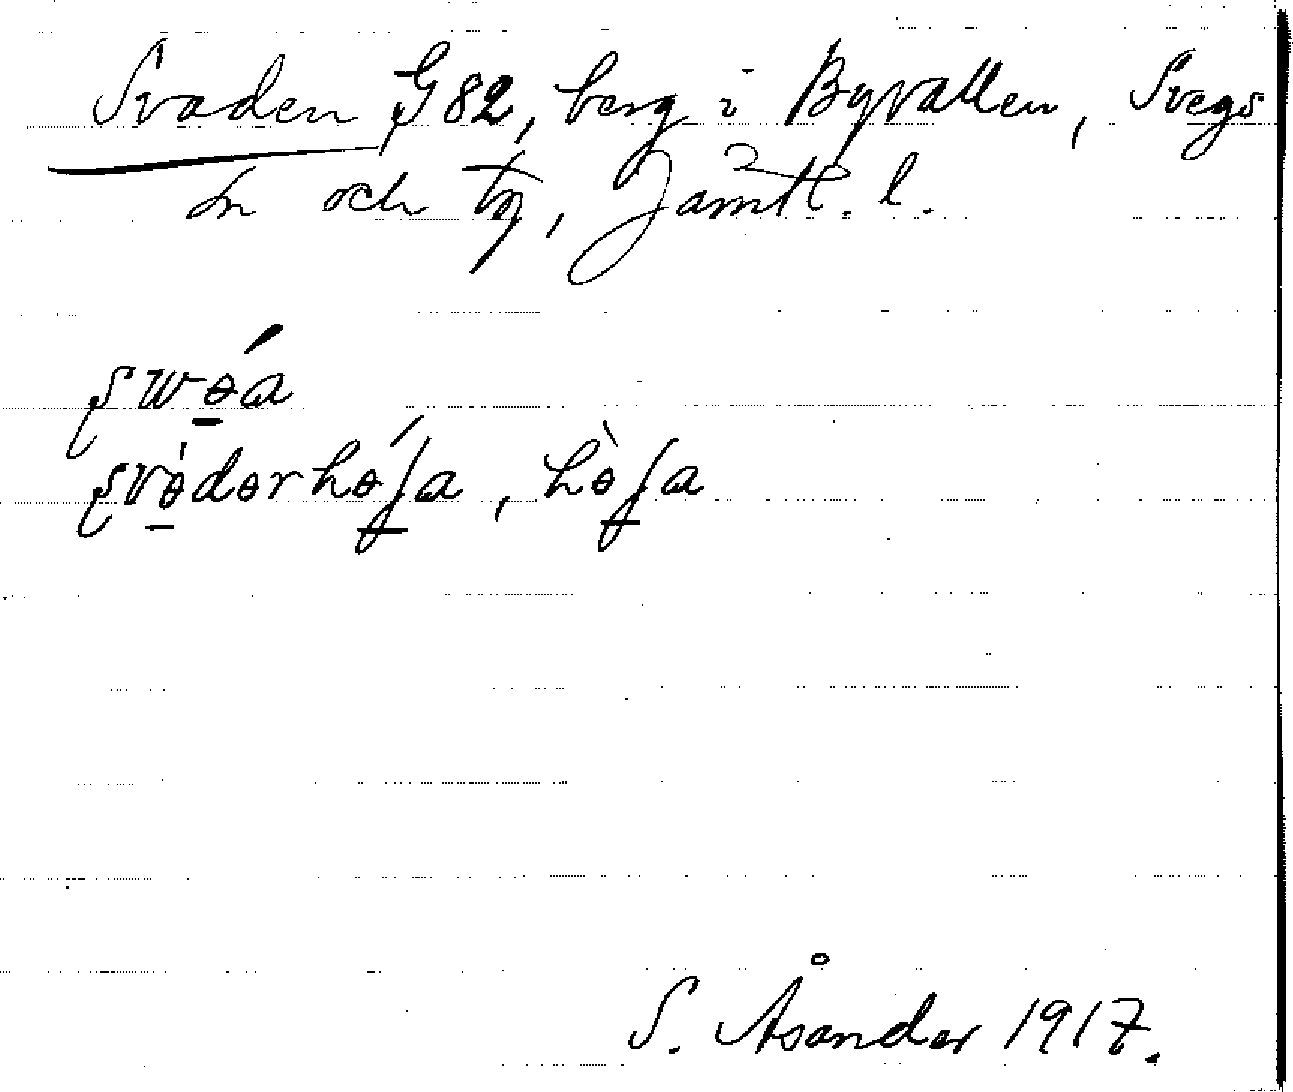 Svaden G 82, berg i Byvallen, Svegs
sn och tg, Jämtl. l.
swɵ́a
svɵ̀dɵrhɵ́ʃa, hɵ̀ʃa
S. Åsander 1917.